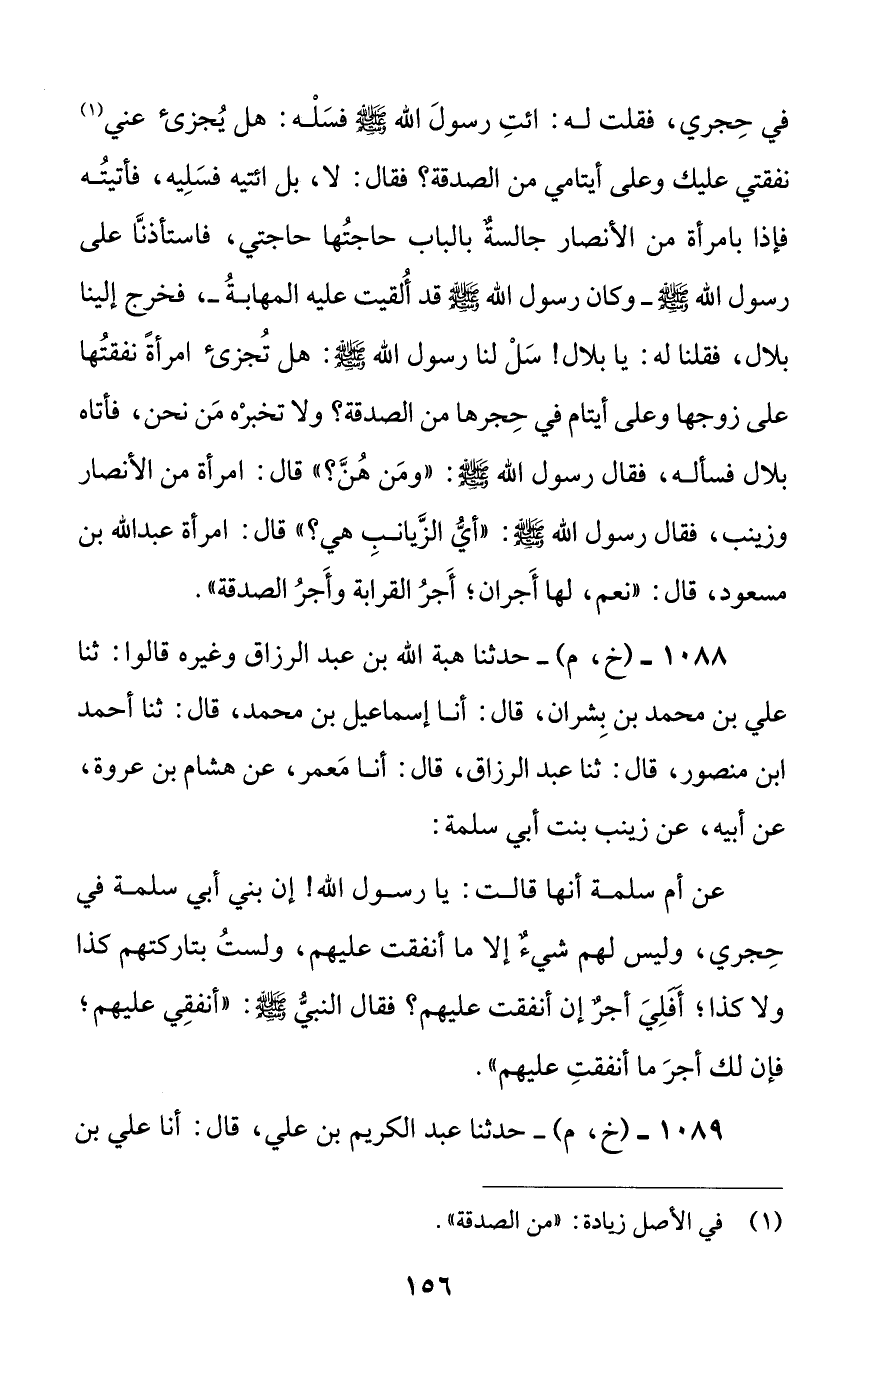 في حِجري، فقلت لـه: ائتِ رسولَ الله ﷺ فسَلْـه: هل يُجزىء عني(١)
نفقتي عليك وعلى أيتامي من الصدقة؟ فقال: لا، بل ائتيه فسَلِيه، فأتيتُـه
فإذا بامرأة من الأنصار جالسةٌ بالباب حاجتُها حاجتي، فاستأذنَّا على
رسول الله ﷺ ـ وكان رسول الله ﷺ قد أُلقيت عليه المهابـةُ ـ، فخرج إلينا
بلال، فقلنا له: يا بلال! سَلْ لنا رسول الله ﷺ: هل تُجزىء امرأةً نفقتُها
على زوجها وعلى أيتام في حِجرها من الصدقة؟ ولا تخبرْه مَن نحن، فأتاه
بلال فسألـه، فقال رسول الله ﷺ: «ومَن هُنَّ؟» قال: امرأة من الأنصار
وزينب، فقال رسول الله ﷺ: «أيُّ الزَّيانـبِ هي؟» قال: امرأة عبدالله بن
مسعود، قال: «نعم، لها أَجران؛ أَجرُ القرابة وأَجرُ الصدقة».
١٠٨٨ ـ (خ، م) ـ حدثنا هبة الله بن عبد الرزاق وغيره قالوا: ثنا
علي بن محمد بن بِشران، قال: أنـا إسماعيل بن محمد، قال: ثنا أحمد
ابن منصور، قال: ثنا عبد الرزاق، قال: أنـا مَعمر، عن هشام بن عروة،
عن أبيه، عن زينب بنت أبي سلمة:
عن أم سلمـة أنها قالـت: يا رسـول الله! إن بني أبي سلمـة في
حِجري، وليس لهم شيءٌ إلا ما أنفقت عليهم، ولستُ بتاركتهم كذا
ولا كذا؛ أَفَلِيَ أجرٌ إن أنفقت عليهم؟ فقال النبيُّ ﷺ: «أنفقِي عليهم؛
فإن لك أجرَ ما أنفقتِ عليهم».
١٠٨٩ ـ (خ، م) ـ حدثنا عبد الكريم بن علي، قال: أنا علي بن
(١) في الأصل زيادة: «من الصدقة».
١٥٦